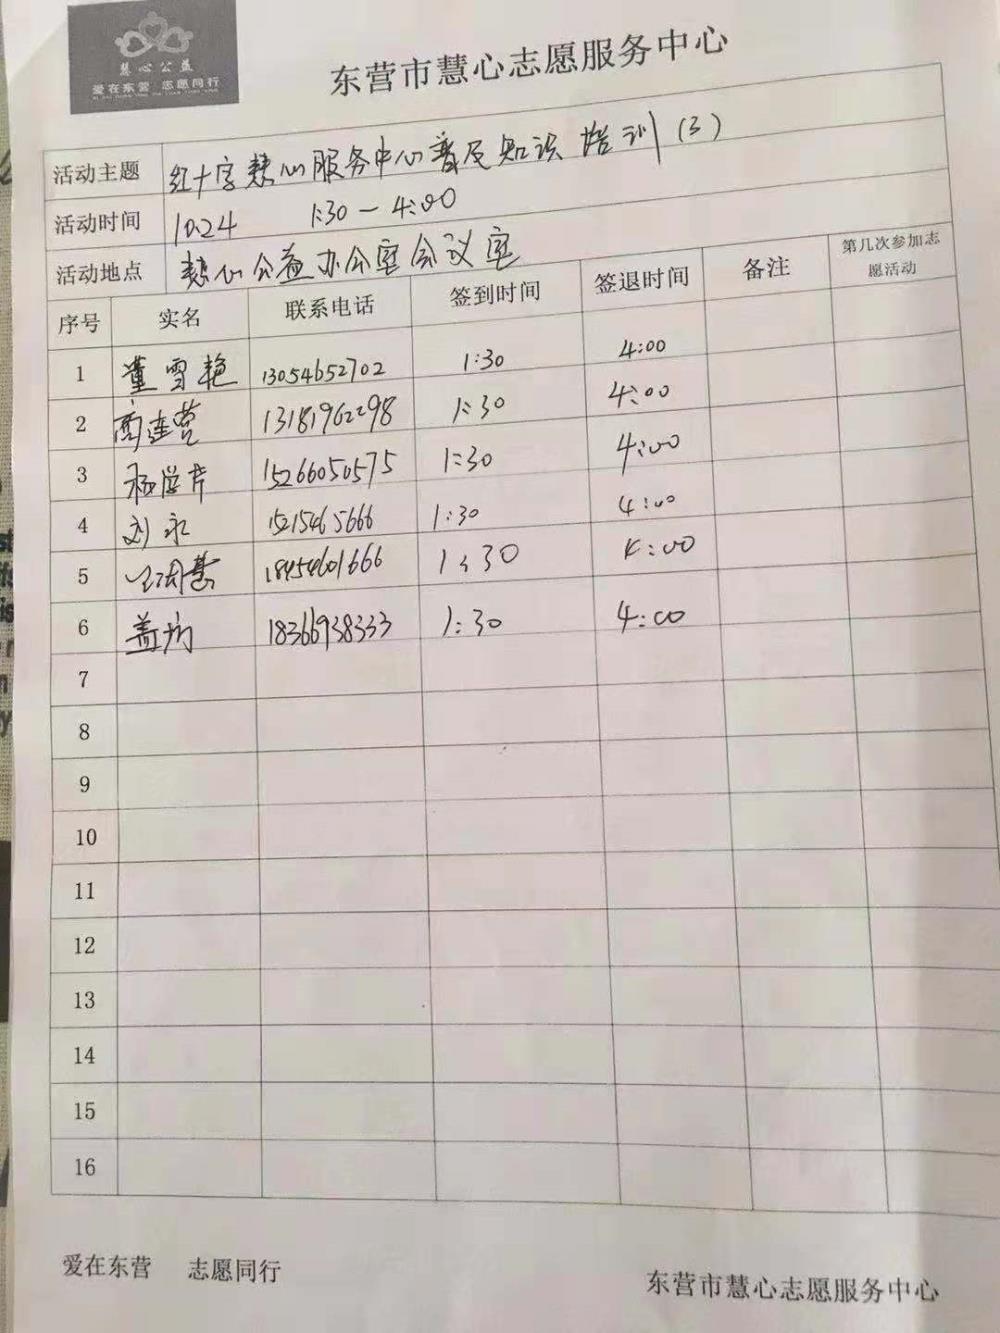 慧心公益
爱在东营 志愿同行
东营市慧心志愿服务中心
活动主题 红十字慧心服务中心普及知识培训(3)
活动时间 10.24 1:30-4:00
活动地点 慧心公益办公室会议室
序号 实名 联系电话 签到时间 签退时间 备注 第几次参加志愿活动
1 董雪艳 13054652702 1:30 4:00
2 商连营 13181962298 1:30 4:00
3 杨学芹 15266050575 1:30 4:00
4 刘永 15215465666 1:30 4:00
5 18454601666 1:30 4:00
6 盖 18366938333 1:30 4:00
7
8
9
10
11
12
13
14
15
16
爱在东营 志愿同行
东营市慧心志愿服务中心